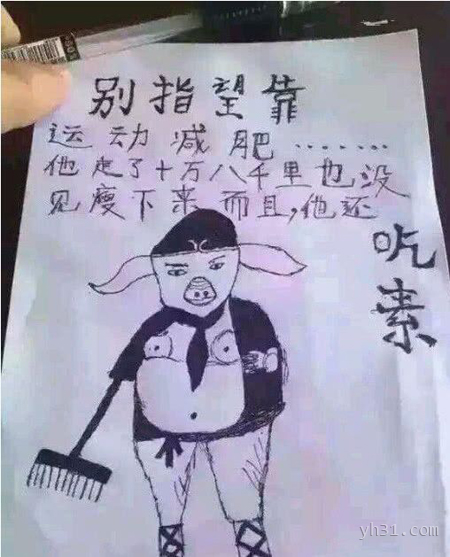 别指望靠
运动减肥......
他走了十万八千里也没
见瘦下来而且,他还
吃素
yh31.com